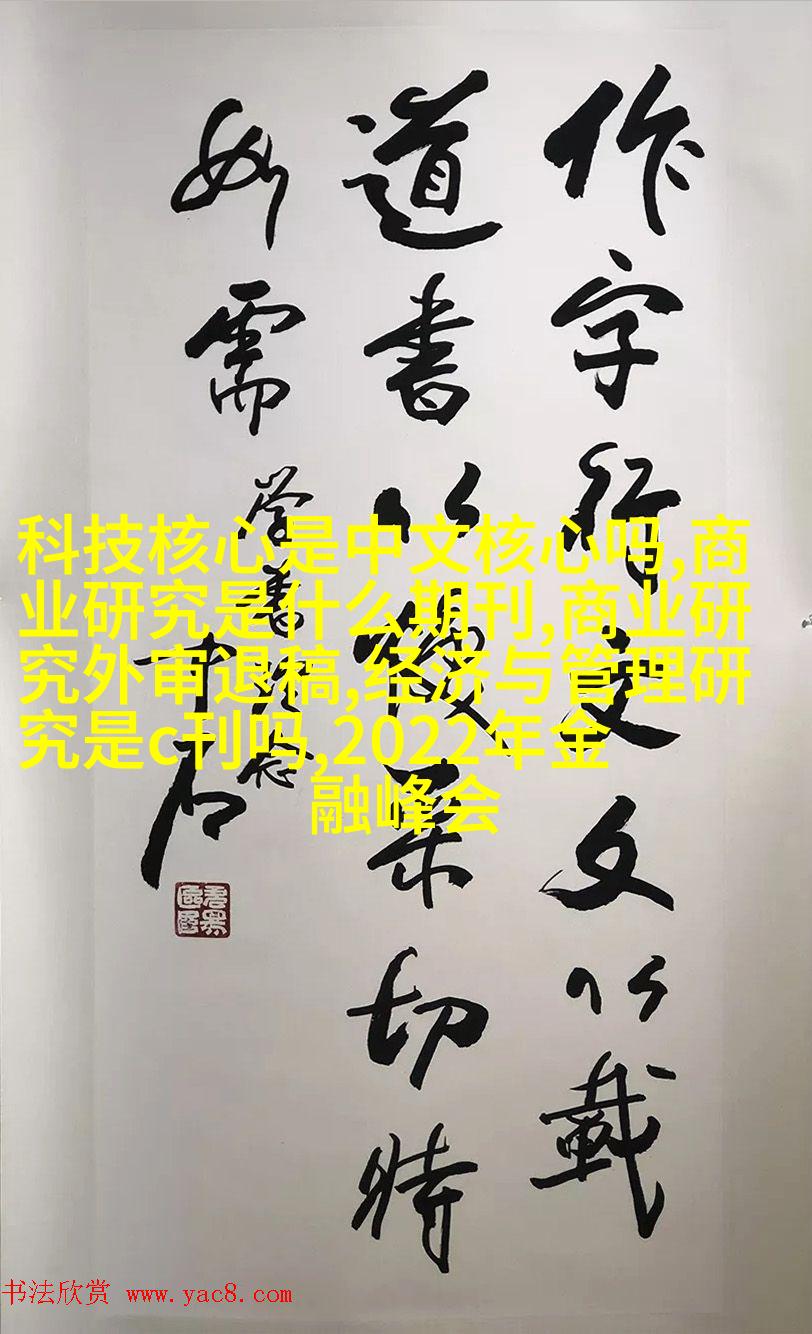 作字行文文以載
道書以焕采切時
如需
学書念
中石
科技核心是中文核心吗,商
业研究是什么期刊,商业研
究外审退稿,经济与管理研
究是c刊吗,2022年金
融峰会
书法欣赏 www.yac8.com